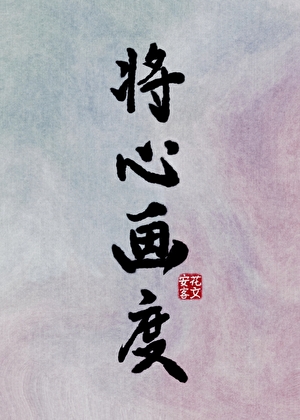 将心画度
花文
安客